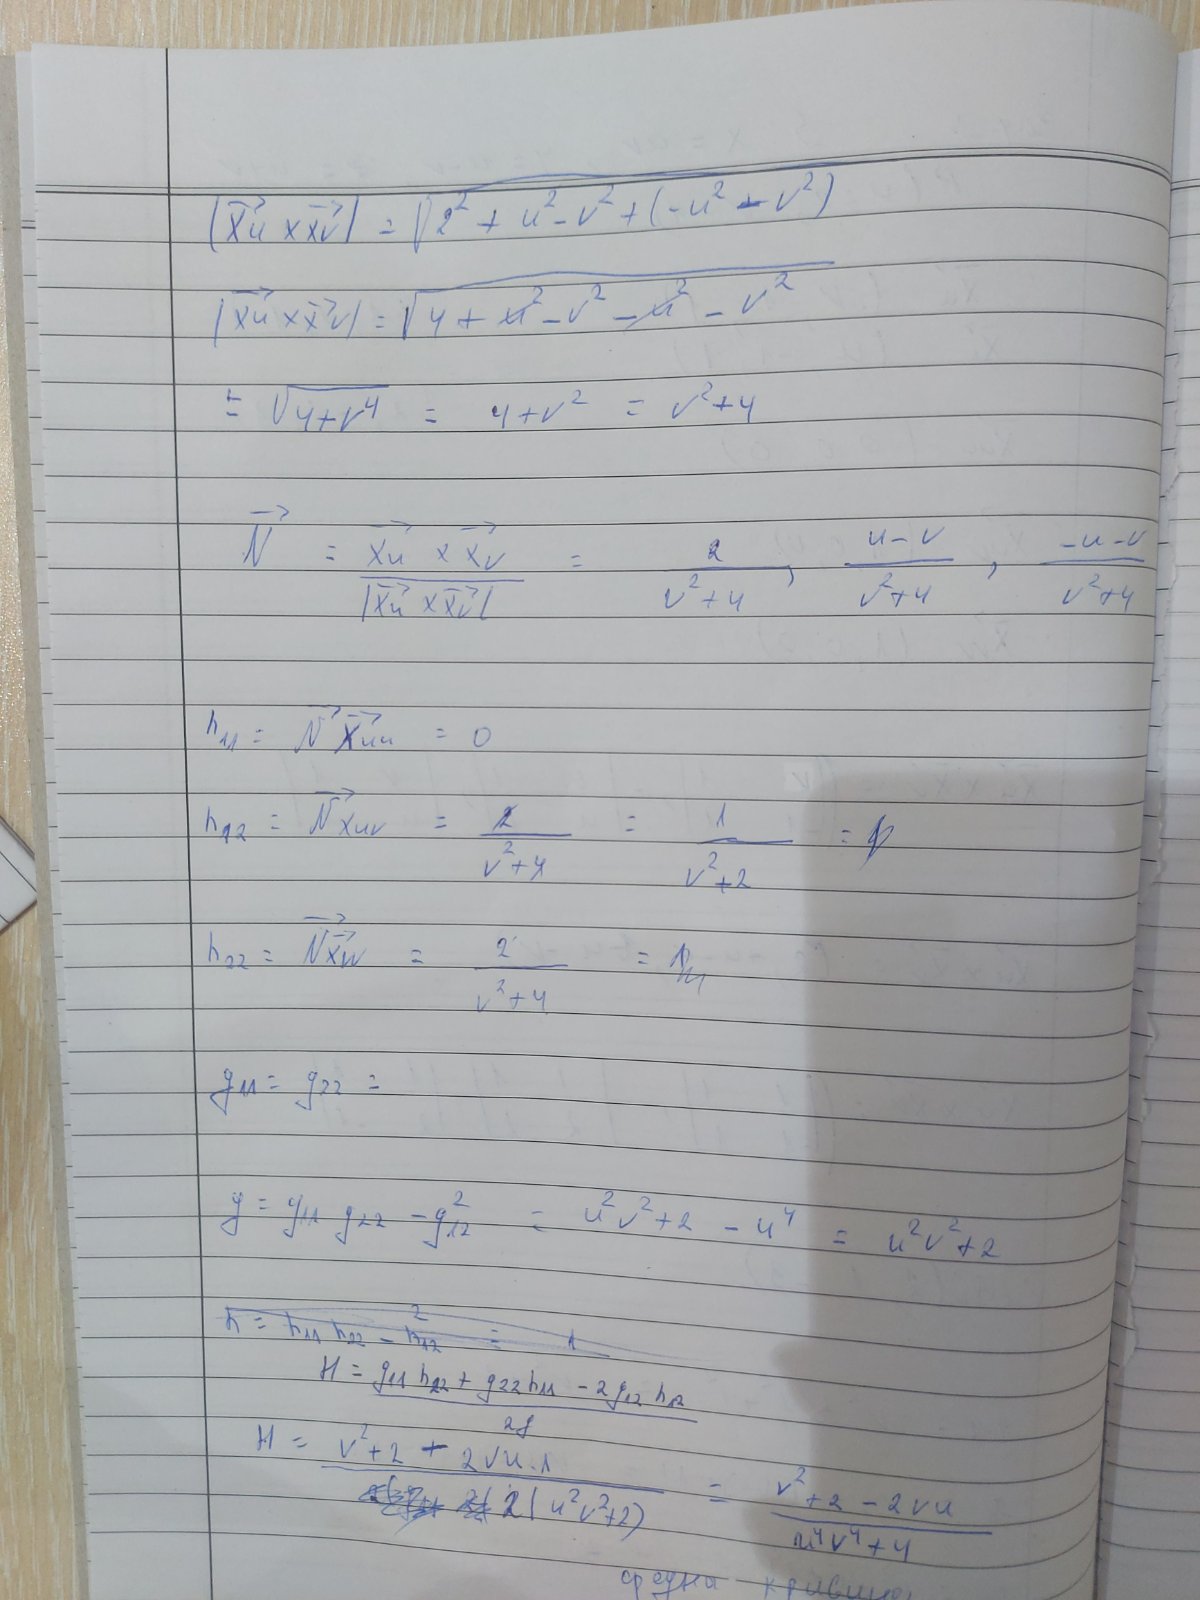 |x⃗u × x⃗v| = √(2² + u² - v² + (-u² - v²))
|x⃗u × x⃗v| = √(4 + u² - v² - u² - v²)
= √(4+v⁴) = 4+v² = v²+4
N⃗ = (x⃗u × x⃗v)/|x⃗u × x⃗v| = 2/(v²+4), (u-v)/(v²+4), (-u-v)/(v²+4)
h₁₁ = N⃗ x⃗uu = 0
h₁₂ = N⃗xuv = 2/(v²+4) = 1/(v²+2) =
h₂₂ = N⃗x⃗vv = 2/(v²+4) =
g₁₁ = g₂₂ =
g = g₁₁ g₂₂ - g₁₂² = u²v²+2 - u⁴ = u²v²+2
h = h₁₁ h₂₂ - h₁₂² = 1
H = (g₁₁h₂₂ + g₂₂h₁₁ - 2g₁₂h₁₂)/2g
H = (v²+2 - 2vu.1)/(2(u²v²+2)) = (v²+2-2vu)/(u⁴v⁴+4)
средна кривина